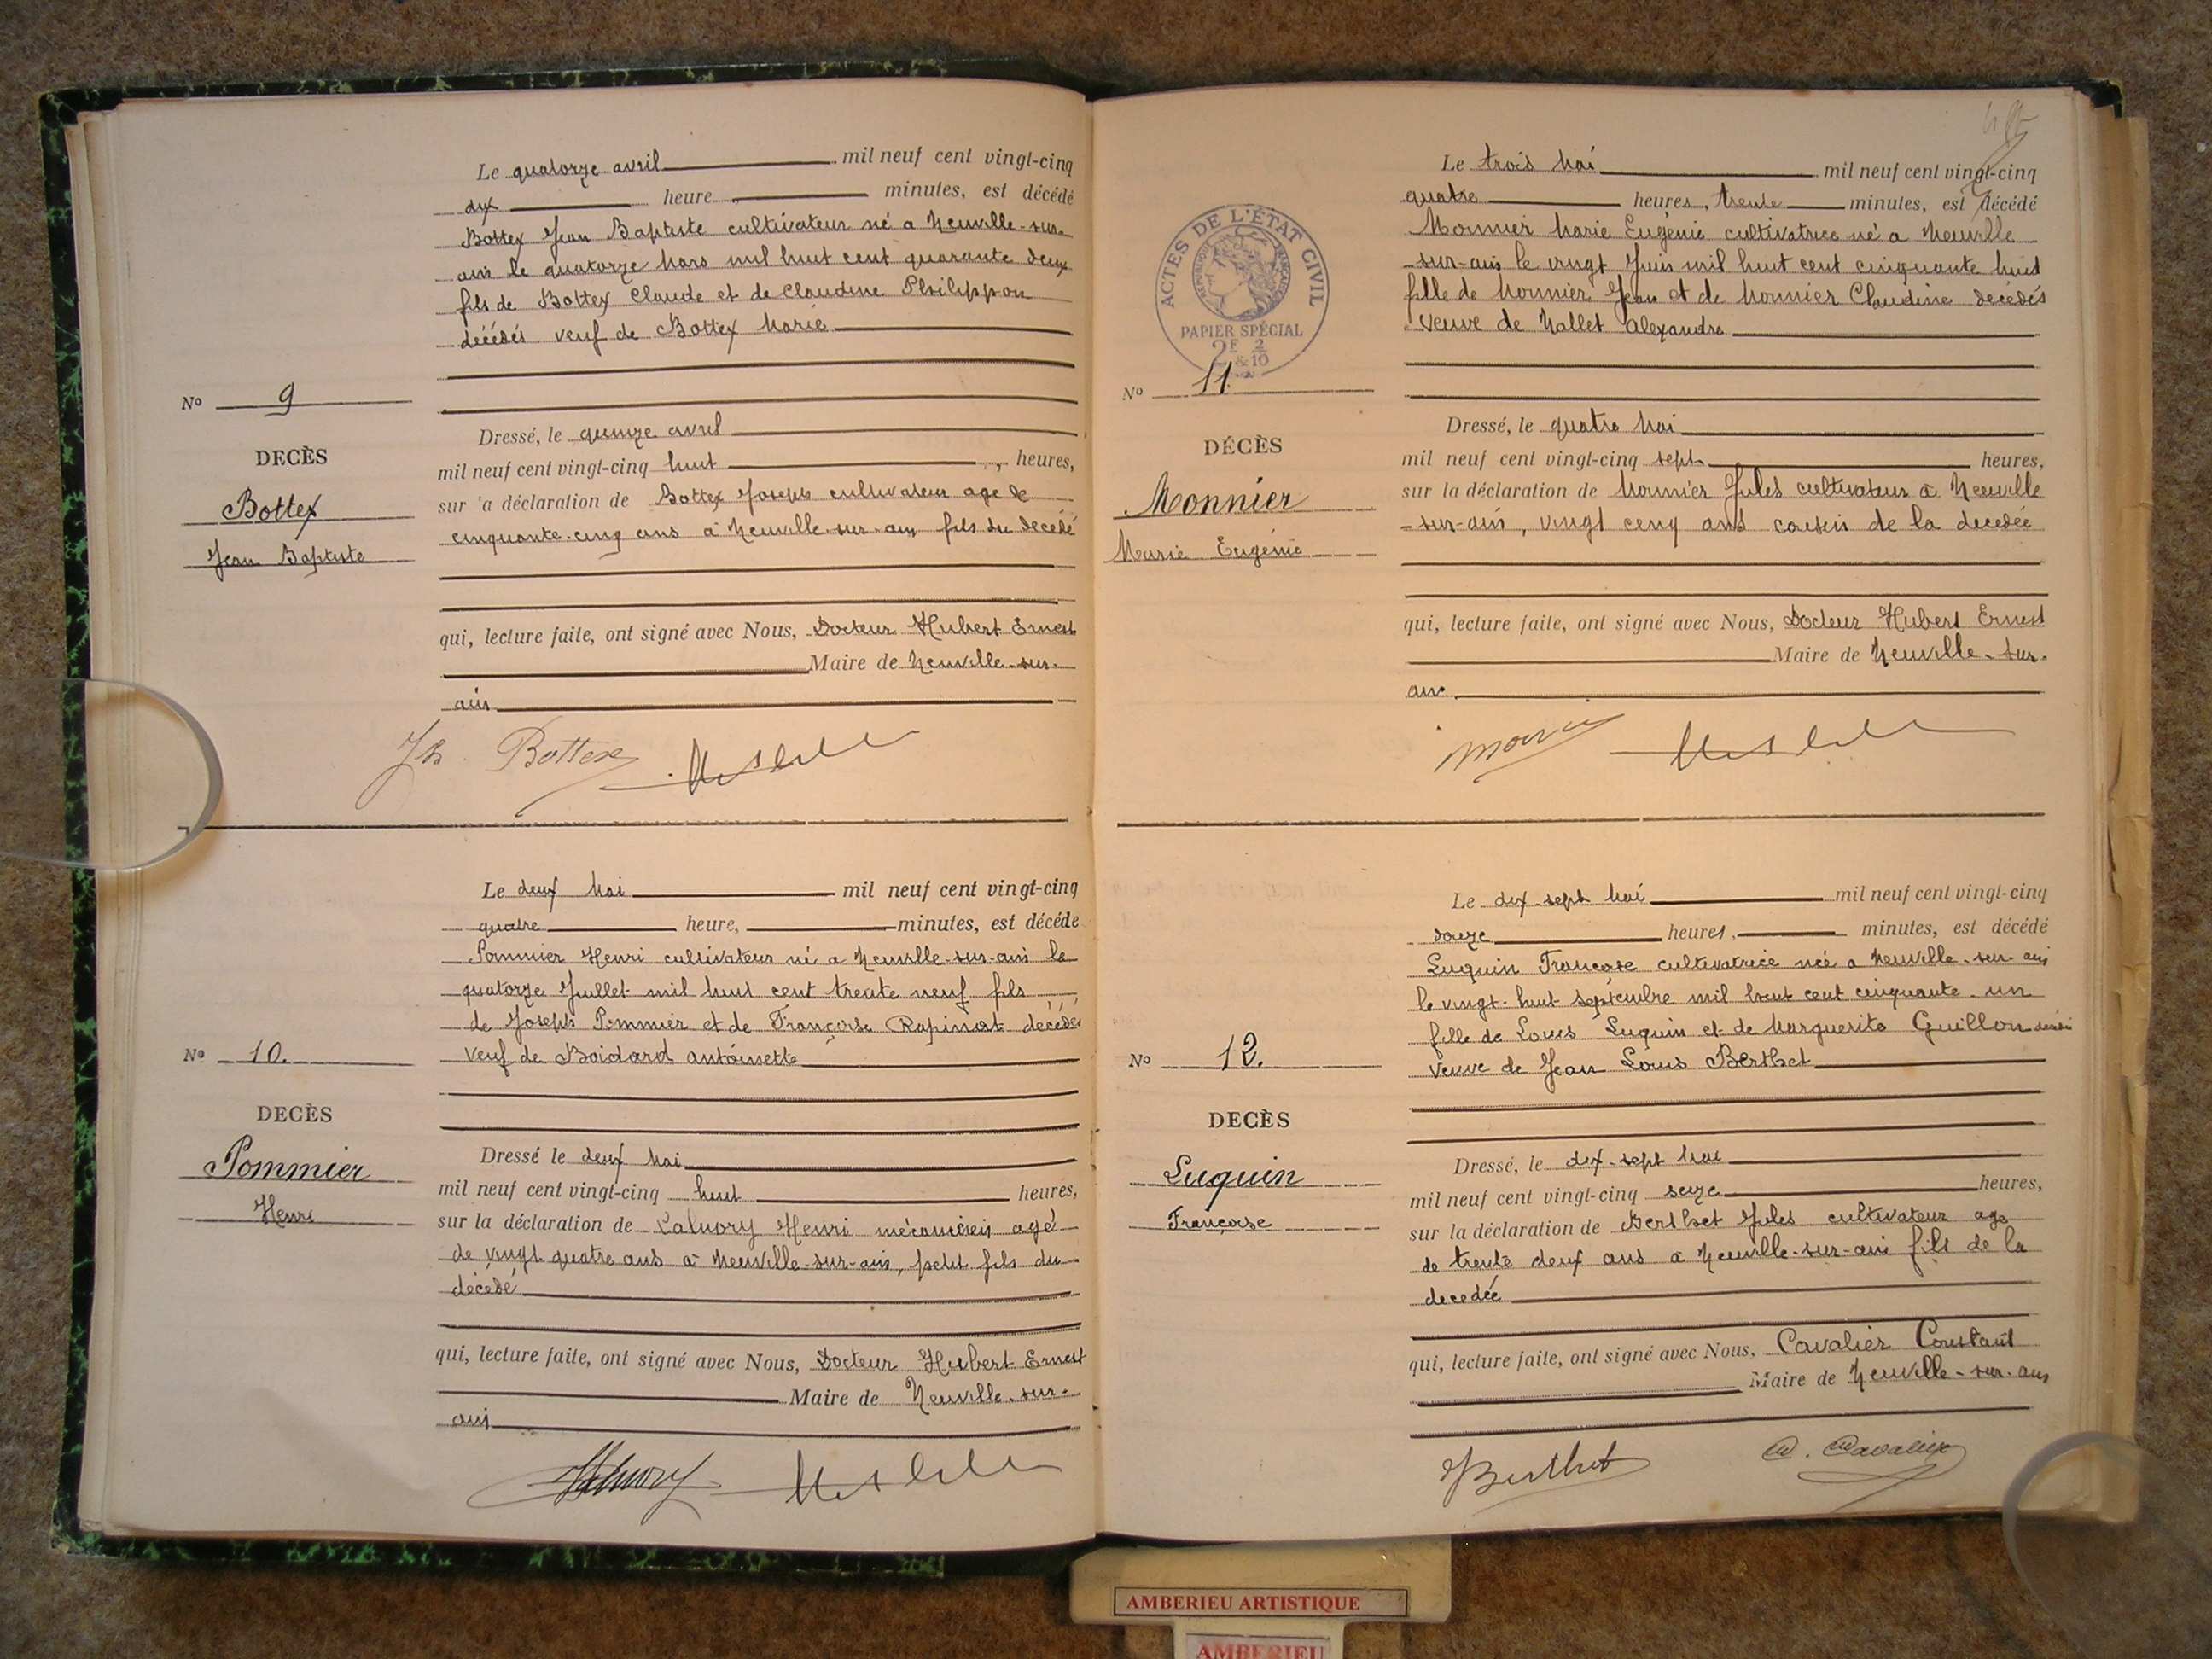 Le quatorze avril mil neuf cent vingt-cinq
dix heure minutes, est décédé
Bottex Jean Baptiste cultivateur né a Neuville-sur-
ain le quatorze Mars mil huit cent quarante deux
fils de Bottex Claude et de Claudine Philippon
décédés veuf de Bottex Marie
No 9
DECÈS
Bottex
Jean Baptiste
Dressé, le quinze avril
mil neuf cent vingt-cinq huit heures,
sur a déclaration de Bottex Joseph cultivateur age de
cinquante-cinq ans a Neuville-sur-ain fils du decédé
qui, lecture faite, ont signé avec Nous, Docteur Hubert Ernest
Maire de Neuville-sur-
ain
Bottex
Le deux Mai mil neuf cent vingt-cinq
quatre heure, minutes, est décéde
Pommier Henri cultivateur né a Neuville-sur-ain le
quatorze Juillet mil huit cent trente neuf fils
de Joseph Pommier et de Françoise Rapinat decédés
veuf de Boidard antoinette
No 10.
DECÈS
Pommier
Henri
Dressé le deux Mai
mil neuf cent vingt-cinq huit heures,
sur la déclaration de Henri mécanicien agé
de vingt quatre ans a Neuville-sur-ain, petit fils du
décedé
qui, lecture faite, ont signé avec Nous, Docteur Hubert Ernest
Maire de Neuville-sur-
ain
ACTES DE L'ÉTAT CIVIL
PAPIER SPÉCIAL
2F & 2/10
Le trois Mai mil neuf cent vingt-cinq
quatre heures, trente minutes, est décédé
Monnier Marie Eugénie cultivatrice né a Neuville
-sur-ain le vingt Juin mil huit cent cinquante huit
fille de Monnier Jean et de Monnier Claudine decédés
veuve de Mallet Alexandre
No 11.
DÉCÈS
Monnier
Marie Eugénie
Dressé, le quatre Mai
mil neuf cent vingt-cinq sept heures,
sur la déclaration de Monnier Jules cultivateur a Neuville
-sur-ain, vingt cinq ans cousin de la decedée
qui, lecture faite, ont signé avec Nous, Docteur Hubert Ernest
Maire de Neuville-sur-
ain
Le dix-sept Mai mil neuf cent vingt-cinq
douze heures, minutes, est décédé
Luquin Françoise cultivatrice née a Neuville-sur-ain
le vingt-huit septembre mil huit cent cinquante-un
fille de Louis Luquin et de Marguerite Guillon
veuve de Jean Louis Berthet
No 12.
DECÈS
Luquin
Françoise
Dressé, le dix-sept Mai
mil neuf cent vingt-cinq seize heures,
sur la déclaration de Berthet Jules cultivateur age
de trente deux ans a Neuville-sur-ain fils de la
decedée
qui, lecture faite, ont signé avec Nous, Cavalier Constant
Maire de Neuville-sur-ain
Berthet
Cavalier
AMBERIEU ARTISTIQUE
AMBERIEU